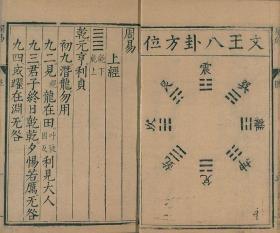 文王八卦方位
震
巽
離
坤
兌
乾
坎
艮
周易
上經
乾下
乾上
乾元亨利貞
初九潛龍勿用
九二見龍在田利見大人
九三君子終日乾乾夕惕若厲无咎
九四或躍在淵无咎